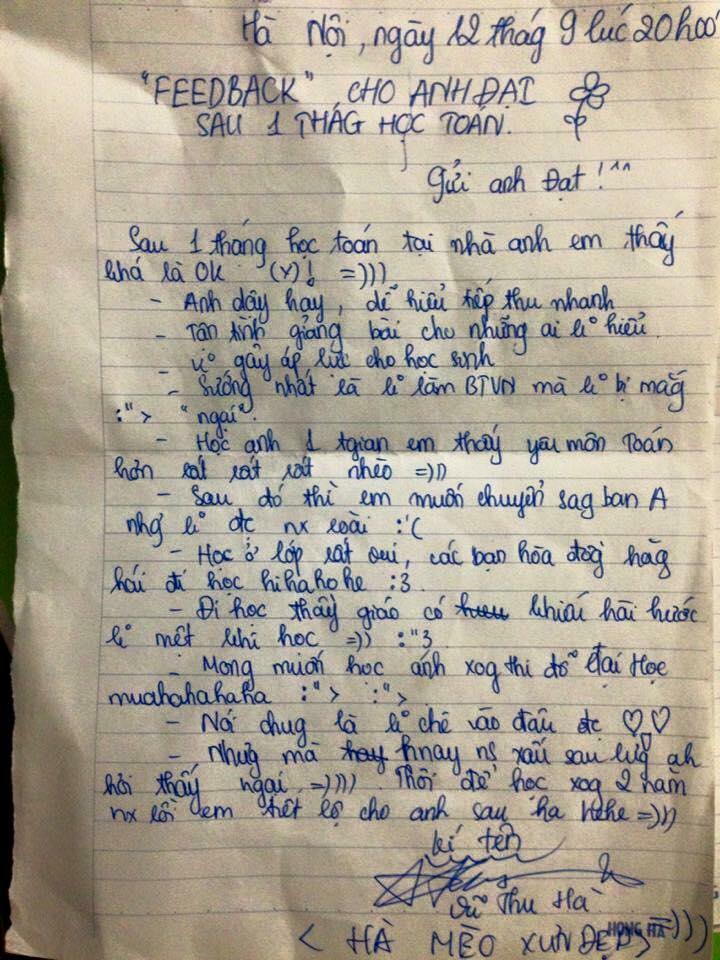 Hà Nội, ngày 12 thág 9 lúc 20h00'
"FEEDBACK" CHO ANH ĐẠT
SAU 1 THÁG HỌC TOÁN.
Gửi anh Đạt!^^
Sau 1 tháng học toán tại nhà anh em thấy
khá là OK (Y)! =)))
- Anh dậy hay, dễ hiểu tiếp thu nhanh
- Tận tình giảng bài cho những ai k° hiểu
- K° gây áp lực cho học sinh
- Sướng nhất là k° làm BTVN mà k° bị mắg
:"> "ngại".
- Học anh 1 tgian em thấy yêu môn Toán
hơn rất rất rất nhèo =)))
- Sau đó thì em muốn chuyển sag ban A
nhg k° đc nx roài :'(
- Học ở lớp rất oui, các bạn hòa đồg hăg
hái đi học hihahohe :3
- Đi học thầy giáo có khiếu hài hước
k° mệt khi học =)) :"3
- Mong muốn học anh xog thi đỗ Đại Học
muahahahaha :"> :">
- Nói chug là k° chê vào đâu đc ♡♡
- Nhưg mà hnay ns xấu sau lưg ah
hơi thấy ngại =)))) Thôi để học xog 2 năm
nx rồi em tiết lộ cho anh sau ha hehe =)))
kí tên
Vũ Thu Hà
HONG HA
< HÀ MÈO XUN ĐẸP > =))))